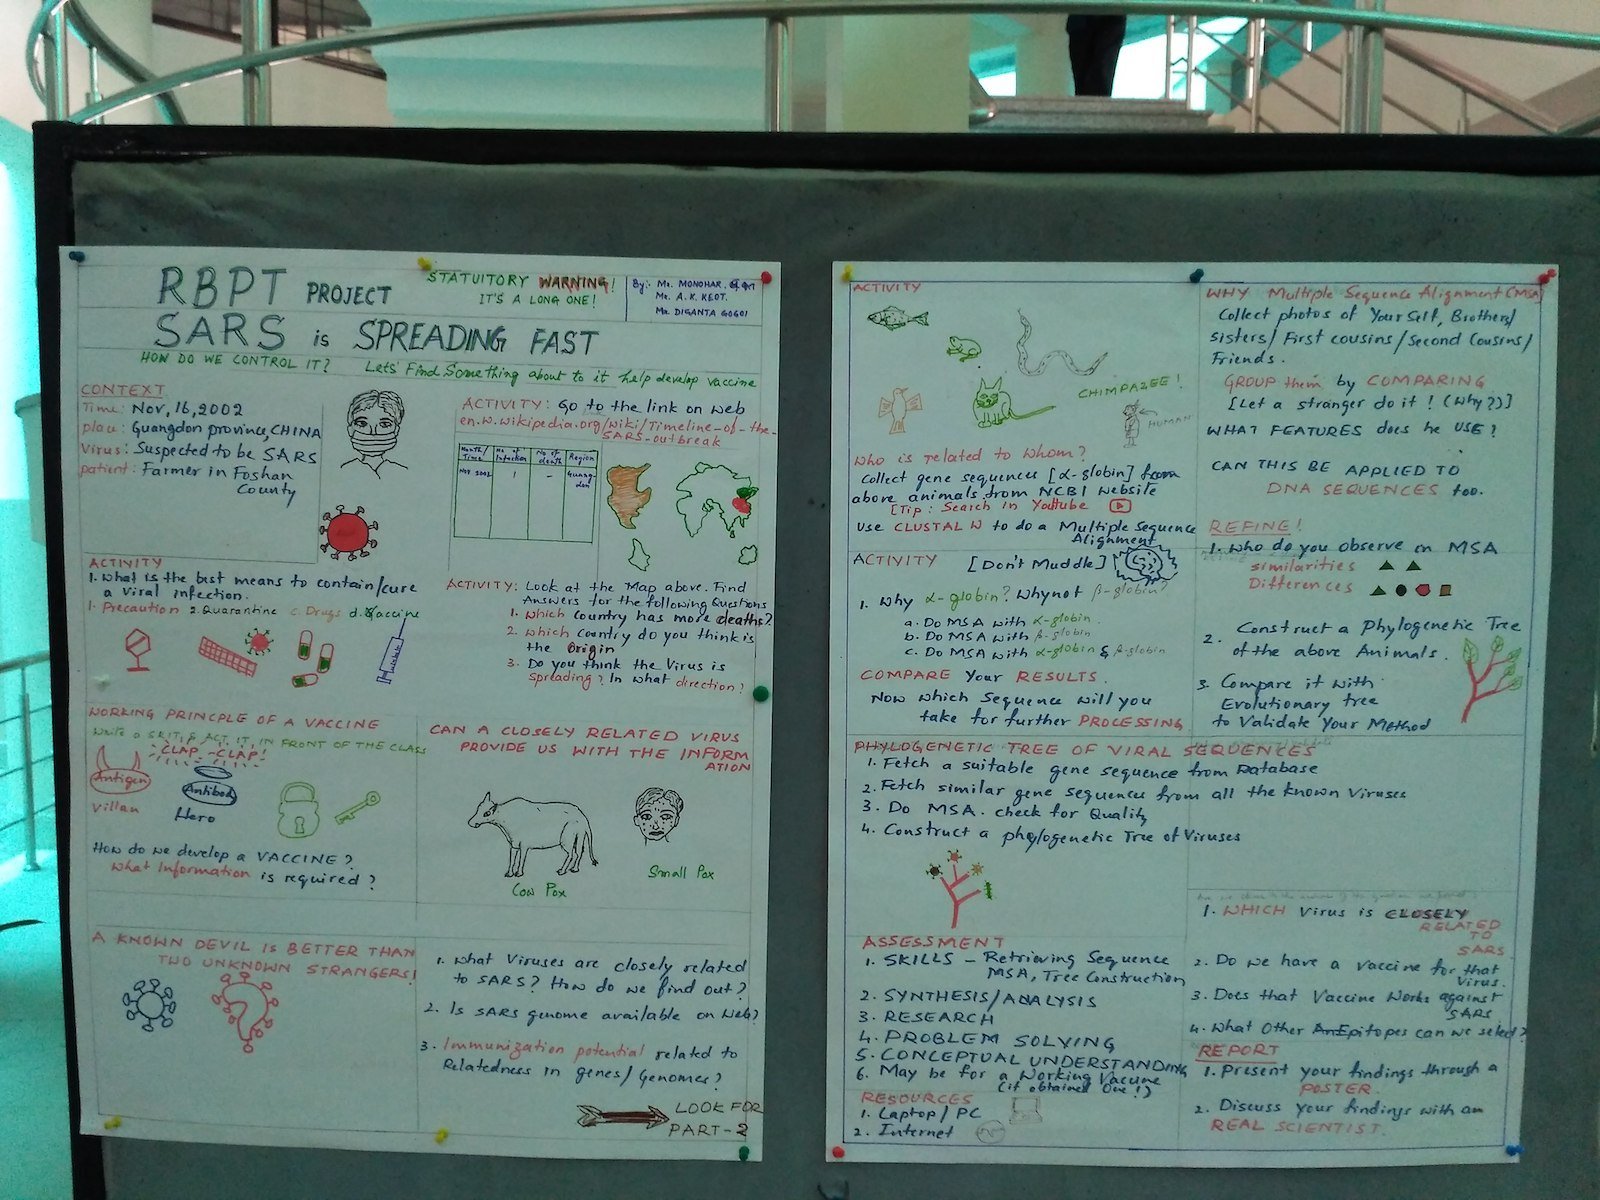 RBPT PROJECT
STATUITORY WARNING!
IT'S A LONG ONE!
By:- Mr. MONOHAR.
Mr. A. K. KEOT.
Mr. DIGANTA GOGOI
SARS is SPREADING FAST
HOW DO WE CONTROL IT? Lets' Find Something about to it help develop vaccine
CONTEXT
Time: Nov, 16, 2002
place: Guangdon province, CHINA
Virus: Suspected to be SARS
patient: Farmer in Foshan
County
ACTIVITY: Go to the link on web
en.w.wikipedia.org/wiki/Timeline-of-the-
SARS-outbreak
Month/Time No of Infection No of death Region
Nov 2002 1 - Guangdon
ACTIVITY
1. What is the best means to contain/cure
a Viral infection.
1. Precaution 2. Quarantine c. Drugs d. Vaccine
ACTIVITY: Look at the Map above. Find
Answers for the following Questions
1. which country has more deaths?
2. which country do you think is
the Origin
3. Do you think the Virus is
spreading? In what direction?
WORKING PRINCPLE OF A VACCINE
Write a SKIT & ACT IT IN FRONT OF THE CLASS
CLAP CLAP!
Antigen
Villan
Antibody
Hero
How do we develop a VACCINE?
What Information is required?
CAN A CLOSELY RELATED VIRUS
PROVIDE US WITH THE INFORM
ATION
Cow Pox
Small Pox
A KNOWN DEVIL IS BETTER THAN
TWO UNKNOWN STRANGERS!
1. What Viruses are closely related
to SARS? How do we find out?
2. Is SARS genome available on Web?
3. Immunization potential related to
Relatedness in genes/Genomes?
LOOK FOR
PART-2
ACTIVITY
CHIMPAZEE!
HUMAN
Who is related to whom?
Collect gene sequences [α-globin] from
above animals from NCBI website
[Tip: Search in Youtube
Use CLUSTAL W to do a Multiple Sequence
Alignment
ACTIVITY [Don't Muddle]
1. Why α-globin? Why not β-globin?
a. Do MSA with α-globin.
b. Do MSA with β-globin
c. Do MSA with α-globin & β-globin
COMPARE Your RESULTS.
Now which Sequence will you
take for further PROCESSING
WHY Multiple Sequence Alignment (MSA)
Collect photos of Yourself, Brothers/
sisters/First cousins/Second Cousins/
Friends.
GROUP them by COMPARING
[Let a stranger do it! (Why?)]
WHAT FEATURES does he USE?
CAN THIS BE APPLIED TO
DNA SEQUENCES too.
REFINE!
1. Who do you observe in MSA
similarities
Differences
2. Construct a Phylogenetic Tree
of the above Animals.
3. Compare it with
Evolutionary tree
to Validate Your Method
PHYLOGENETIC TREE OF VIRAL SEQUENCES
1. Fetch a suitable gene sequence from Database
2. Fetch similar gene sequences from all the known Viruses
3. Do MSA. check for Quality
4. Construct a phylogenetic Tree of Viruses
ASSESSMENT
1. SKILLS - Retrieving Sequence
MSA, Tree Construction
2. SYNTHESIS/ANALYSIS
3. RESEARCH
4. PROBLEM SOLVING
5. CONCEPTUAL UNDERSTANDING
6. May be for a Working Vaccine
(if obtained One!)
RESOURCES
1. Laptop/PC
2. Internet
1. WHICH Virus is CLOSELY
RELATED
TO
SARS
2. Do we have a vaccine for that
Virus.
3. Does that Vaccine Works against
SARS
4. What Other Epitopes can we select?
REPORT
1. Present your findings through a
POSTER
2. Discuss your findings with an
REAL SCIENTIST.